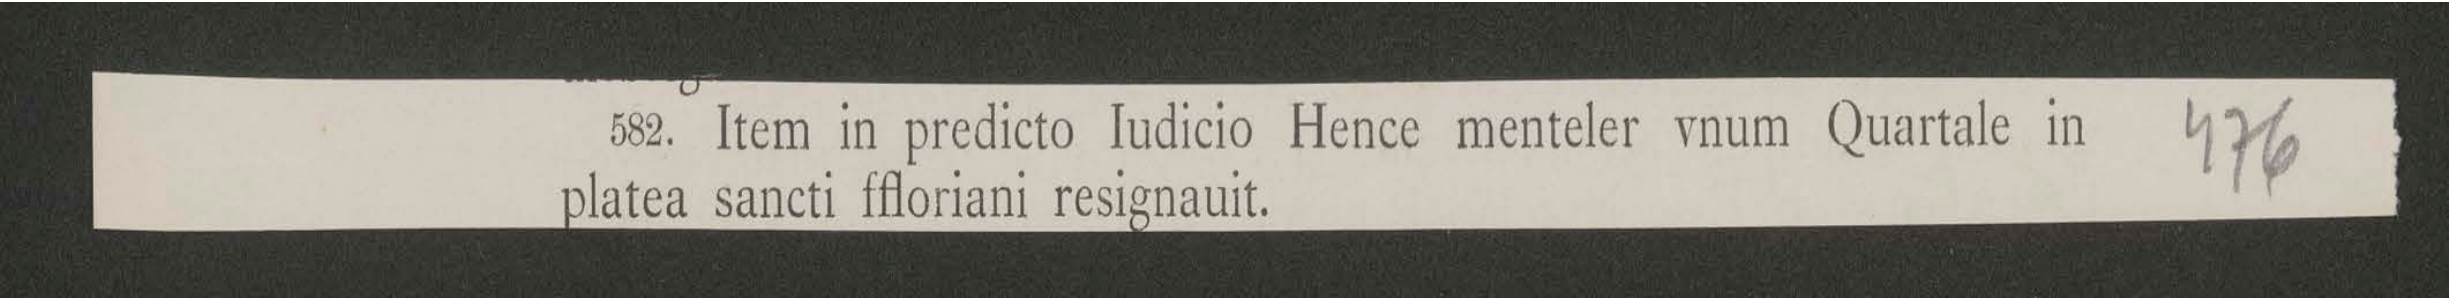 582. Item in predicto Iudicio Hence menteler vnum Quartale in 476
platea sancti ffloriani resignauit.